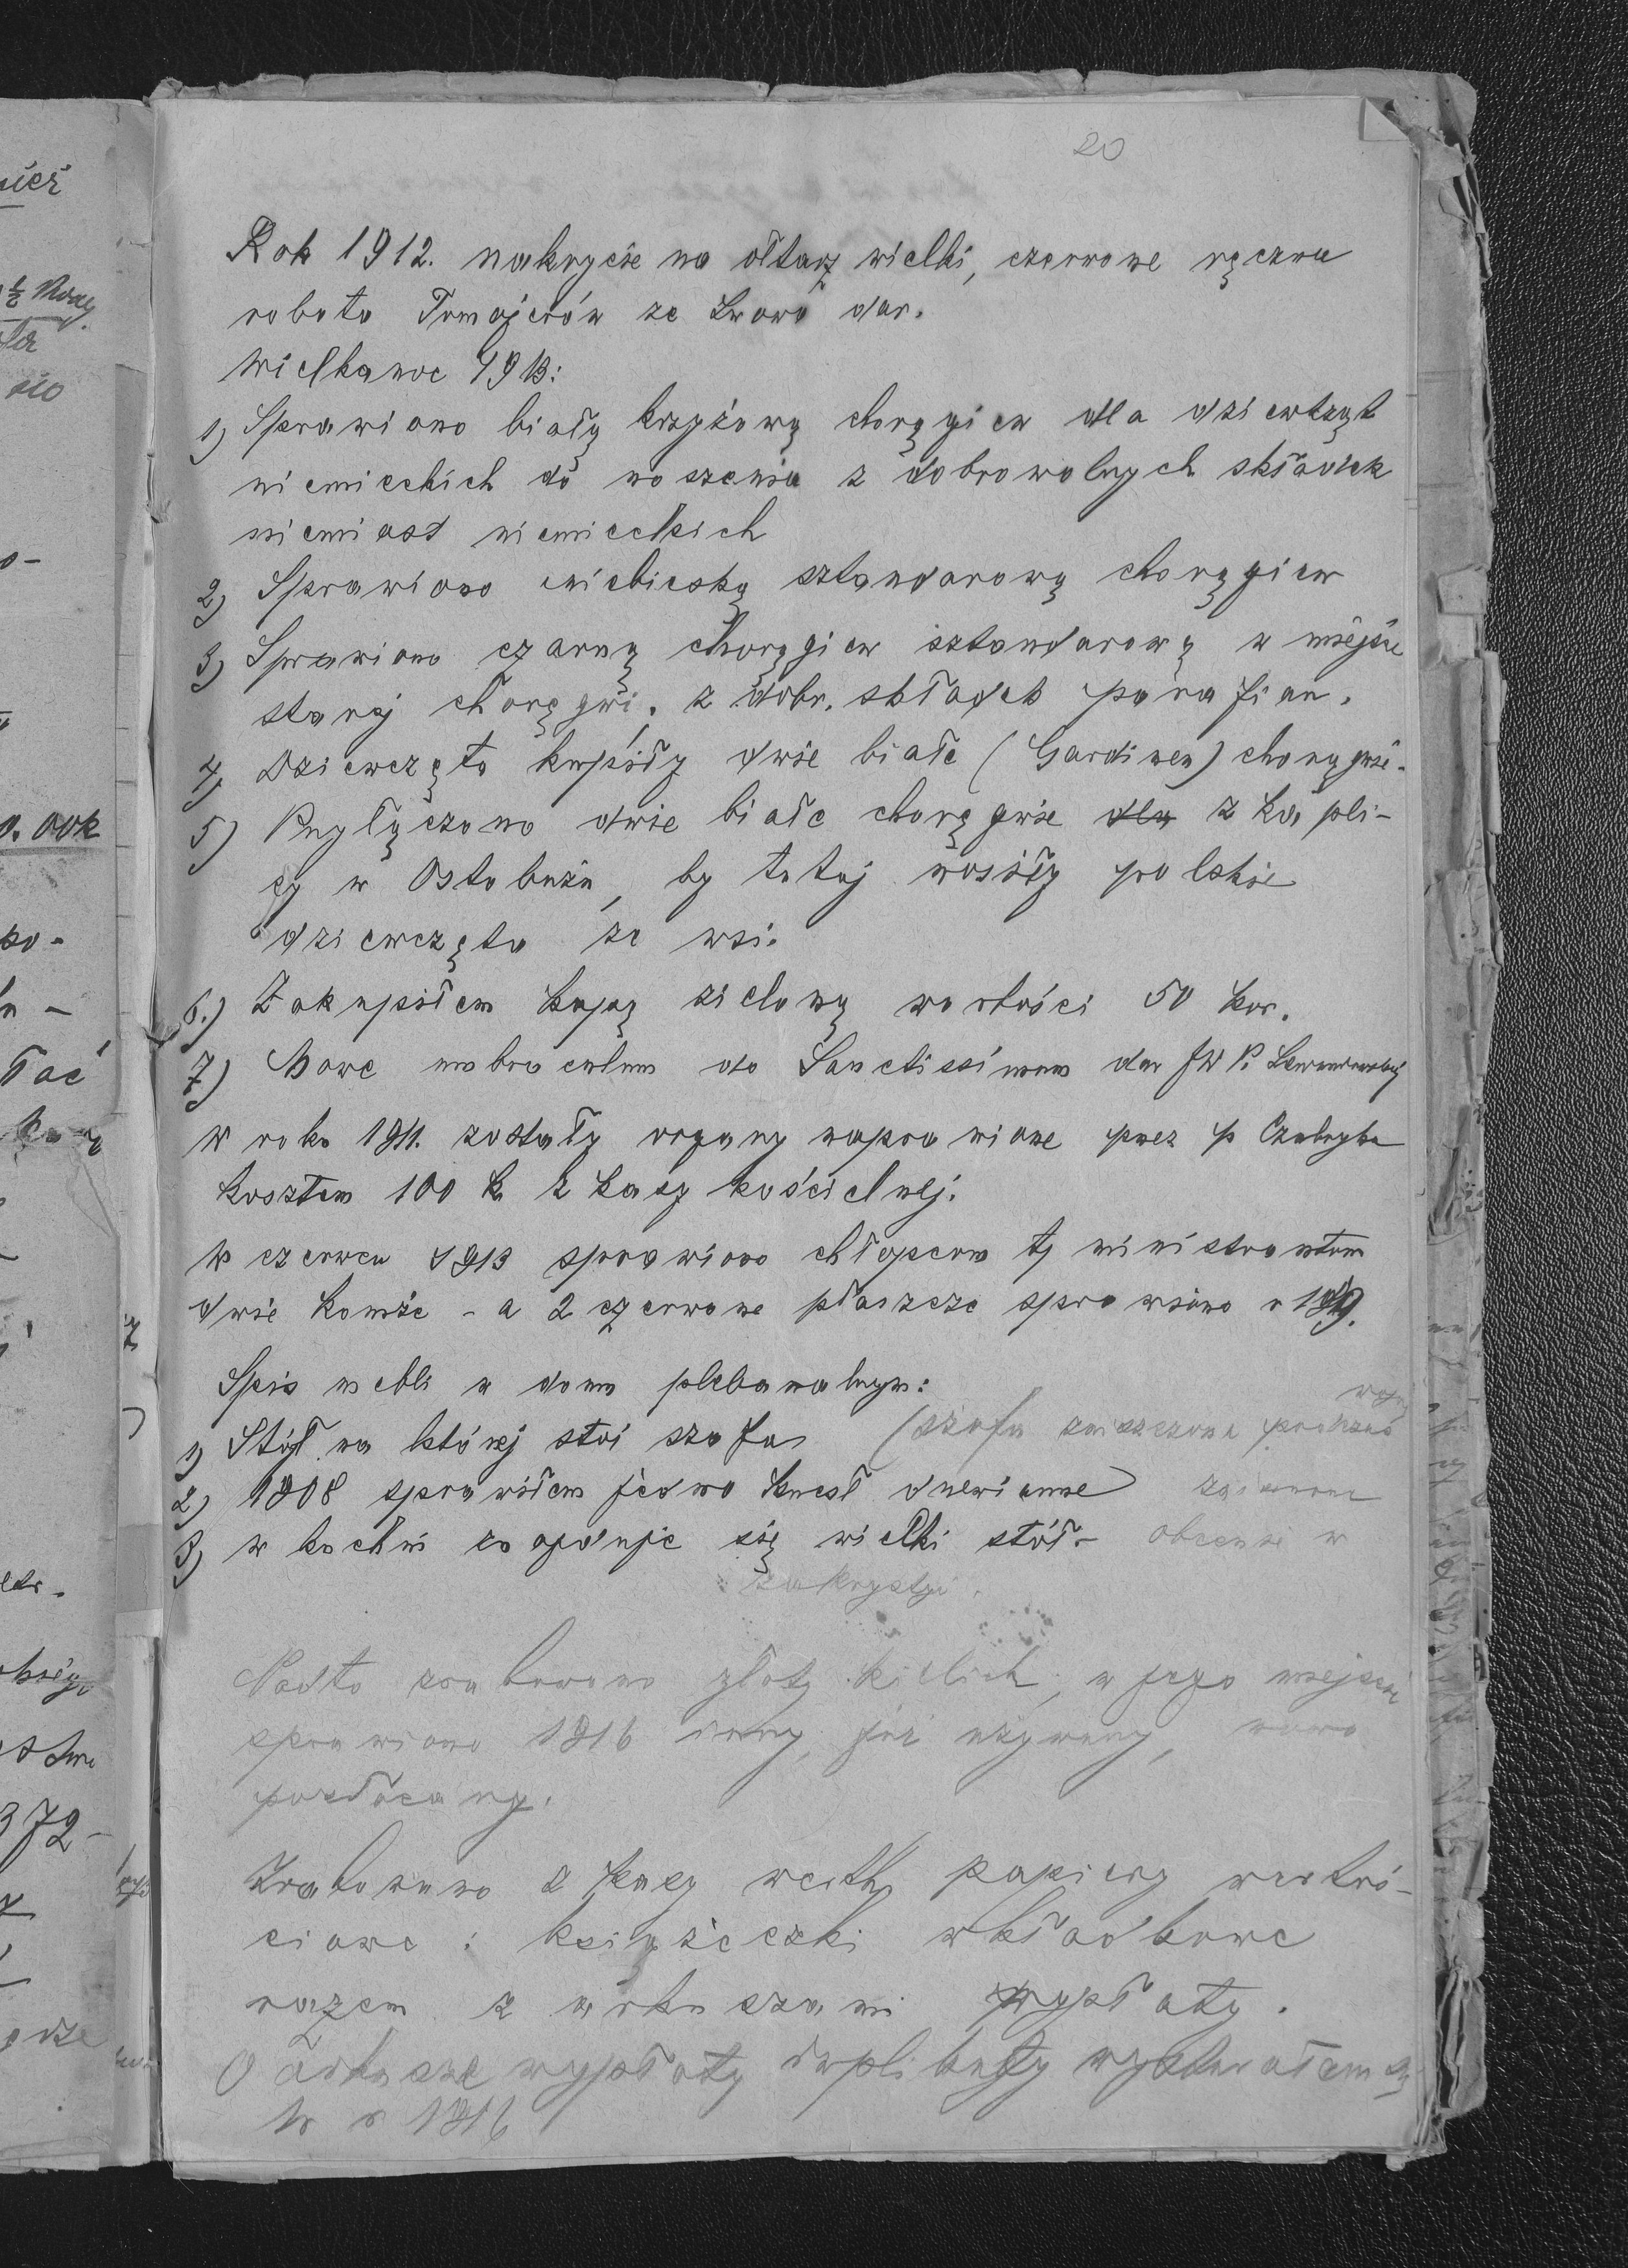 20
Rok 1912. nakrycie na ołtarz wielki, czerwone ręczna
robota Tomajerów ze Lwowa dar.
Wielkanoc 1913:
1) Sprawiono białą krzyżową chorągiew dla dziewcząt
niemieckich do noszenia z dobrowolnych składek
niewiast niemieckich
2) Sprawiono niebieską sztandarową chorągiew
3) Sprawiono czarną chorągiew sztandarową w miejsce
starej chorągwi, z dobr. składek parafian.
4) Dziewczęta kupiły dwie białe (Gardinen) chorągwie.
5) Przyłączono dwie białe chorągwie dla z kapli-
cy w Ostobużu, by tutaj nosiły polskie
dziewczęta ze wsi.
6.) Zakupiłem kapę zieloną wartości 50 kor.
7) Nowe umbraculum do Sanctissimum dar JW P.
W roku 1911. zostały organy naprawione przez p
kosztem 100 K z kasy kościelnej.
W czerwcu 1913 sprawiono chłopcom tj ministrantom
dwie komże - a 2 czerwone płaszcze sprawiono r
Spis mebli w domu plebanalnym:
1) Stół na której stoi szafa (szafa zniszczona podczas wojny
2) 1908 sprawiłem jedno krzesło drewniane
3) w kuchni znajduje się wielki stół - obecnie w
zakrystyi.
Nadto zrabowano złoty kielich, w jego miejsce
sprawiono 1916 inny, już używany, nowo
pozłacany.
Zrabowano z kasy werth. papiery wartoś-
ciowe i książeczki wkładkowe
razem z arkuszami wypłaty.
O arkusze wypłaty duplikaty wystarałem się
W r 1916